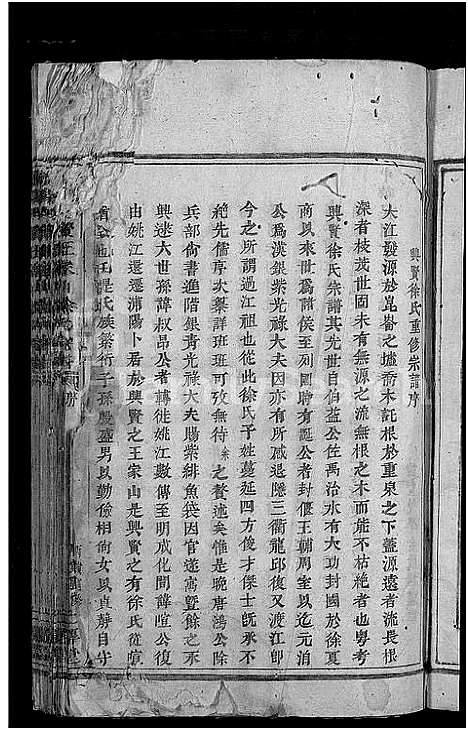 興賢徐氏重修宗譜序
大江發源於崑崙之墟喬木託根於重泉之下蓋源遠者流長根
深者枝茂世固未有無源之流無根之木而能不枯絶者也粤考
興賢徐氏宗譜其先世自伯益公佐禹治水有大功封國於徐夏
商以來世爲諸侯至列國時有誕公者封偃王輔周室以迄元泊
公爲漢銀靑光祿大夫因亦有所感退隱三衢龍邱復又渡江卽
今之所謂過江祖也從此徐氏子姓蔓延四方俊才傑士旣承不
絶先儒序次藜詳班班可攷無待余之贅述矣惟是晚唐鴻公除
兵部尙書進階銀靑光祿大夫賜紫緋魚袋因官遂寓暨餘之永
興逮六世孫諱叔昂公者轉徙姚江數傳至明成化間諱暄公復
由姚江還遷浦陽卜居於興賢之王家山是興賢之有徐氏從暄
公始也厥後氏族繁衍子孫殷盛男以勤儉相尙女以貞靜自守